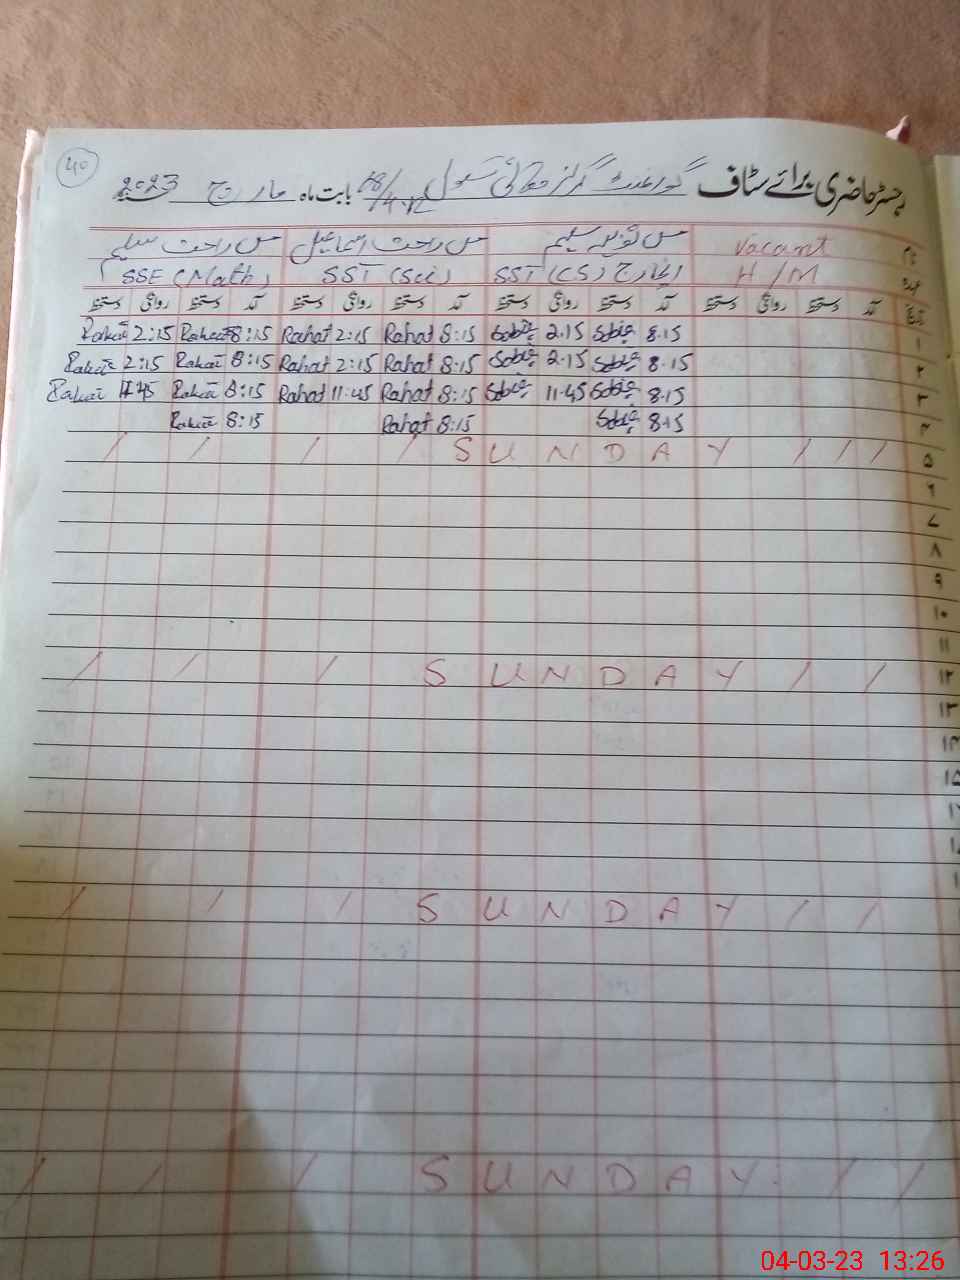 40
رجسٹر حاضری برائے سٹاف گورنمنٹ گرلز ہائی سکول بابت ماہ مارچ 2023
نام Vacant مس ثوبیہ سلیم مس راحت اسماعیل مس راحت سلیم
عہدہ H/M انچارج SST (CS) SST (Sci) SSE (Math)
تاریخ آمد دستخط روانگی دستخط آمد دستخط روانگی دستخط آمد دستخط روانگی دستخط آمد دستخط روانگی دستخط
Rahat 2:15 Rahat 8:15 Rahat 2:15 Rahat 8:15 Sobia 2.15 Sobia 8.15 ۱
Rahat 2:15 Rahat 8:15 Rahat 2:15 Rahat 8:15 Sobia 2.15 Sobia 8.15 ۲
Rahat 11:45 Rahat 8:15 Rahat 11:45 Rahat 8:15 Sobia 11.45 Sobia 8.15 ۳
Rahat 8:15 Rahat 8:15 Sobia 8.15 ۴
/ / / / S U N D A Y / / / ۵
۶
۷
۸
۹
۱۰
۱۱
/ / / S U N D A Y / / ۱۲
۱۳
۱۴
۱۵
/ / / S U N D A Y / /
/ / / S U N D A Y / /
04-03-23 13:26